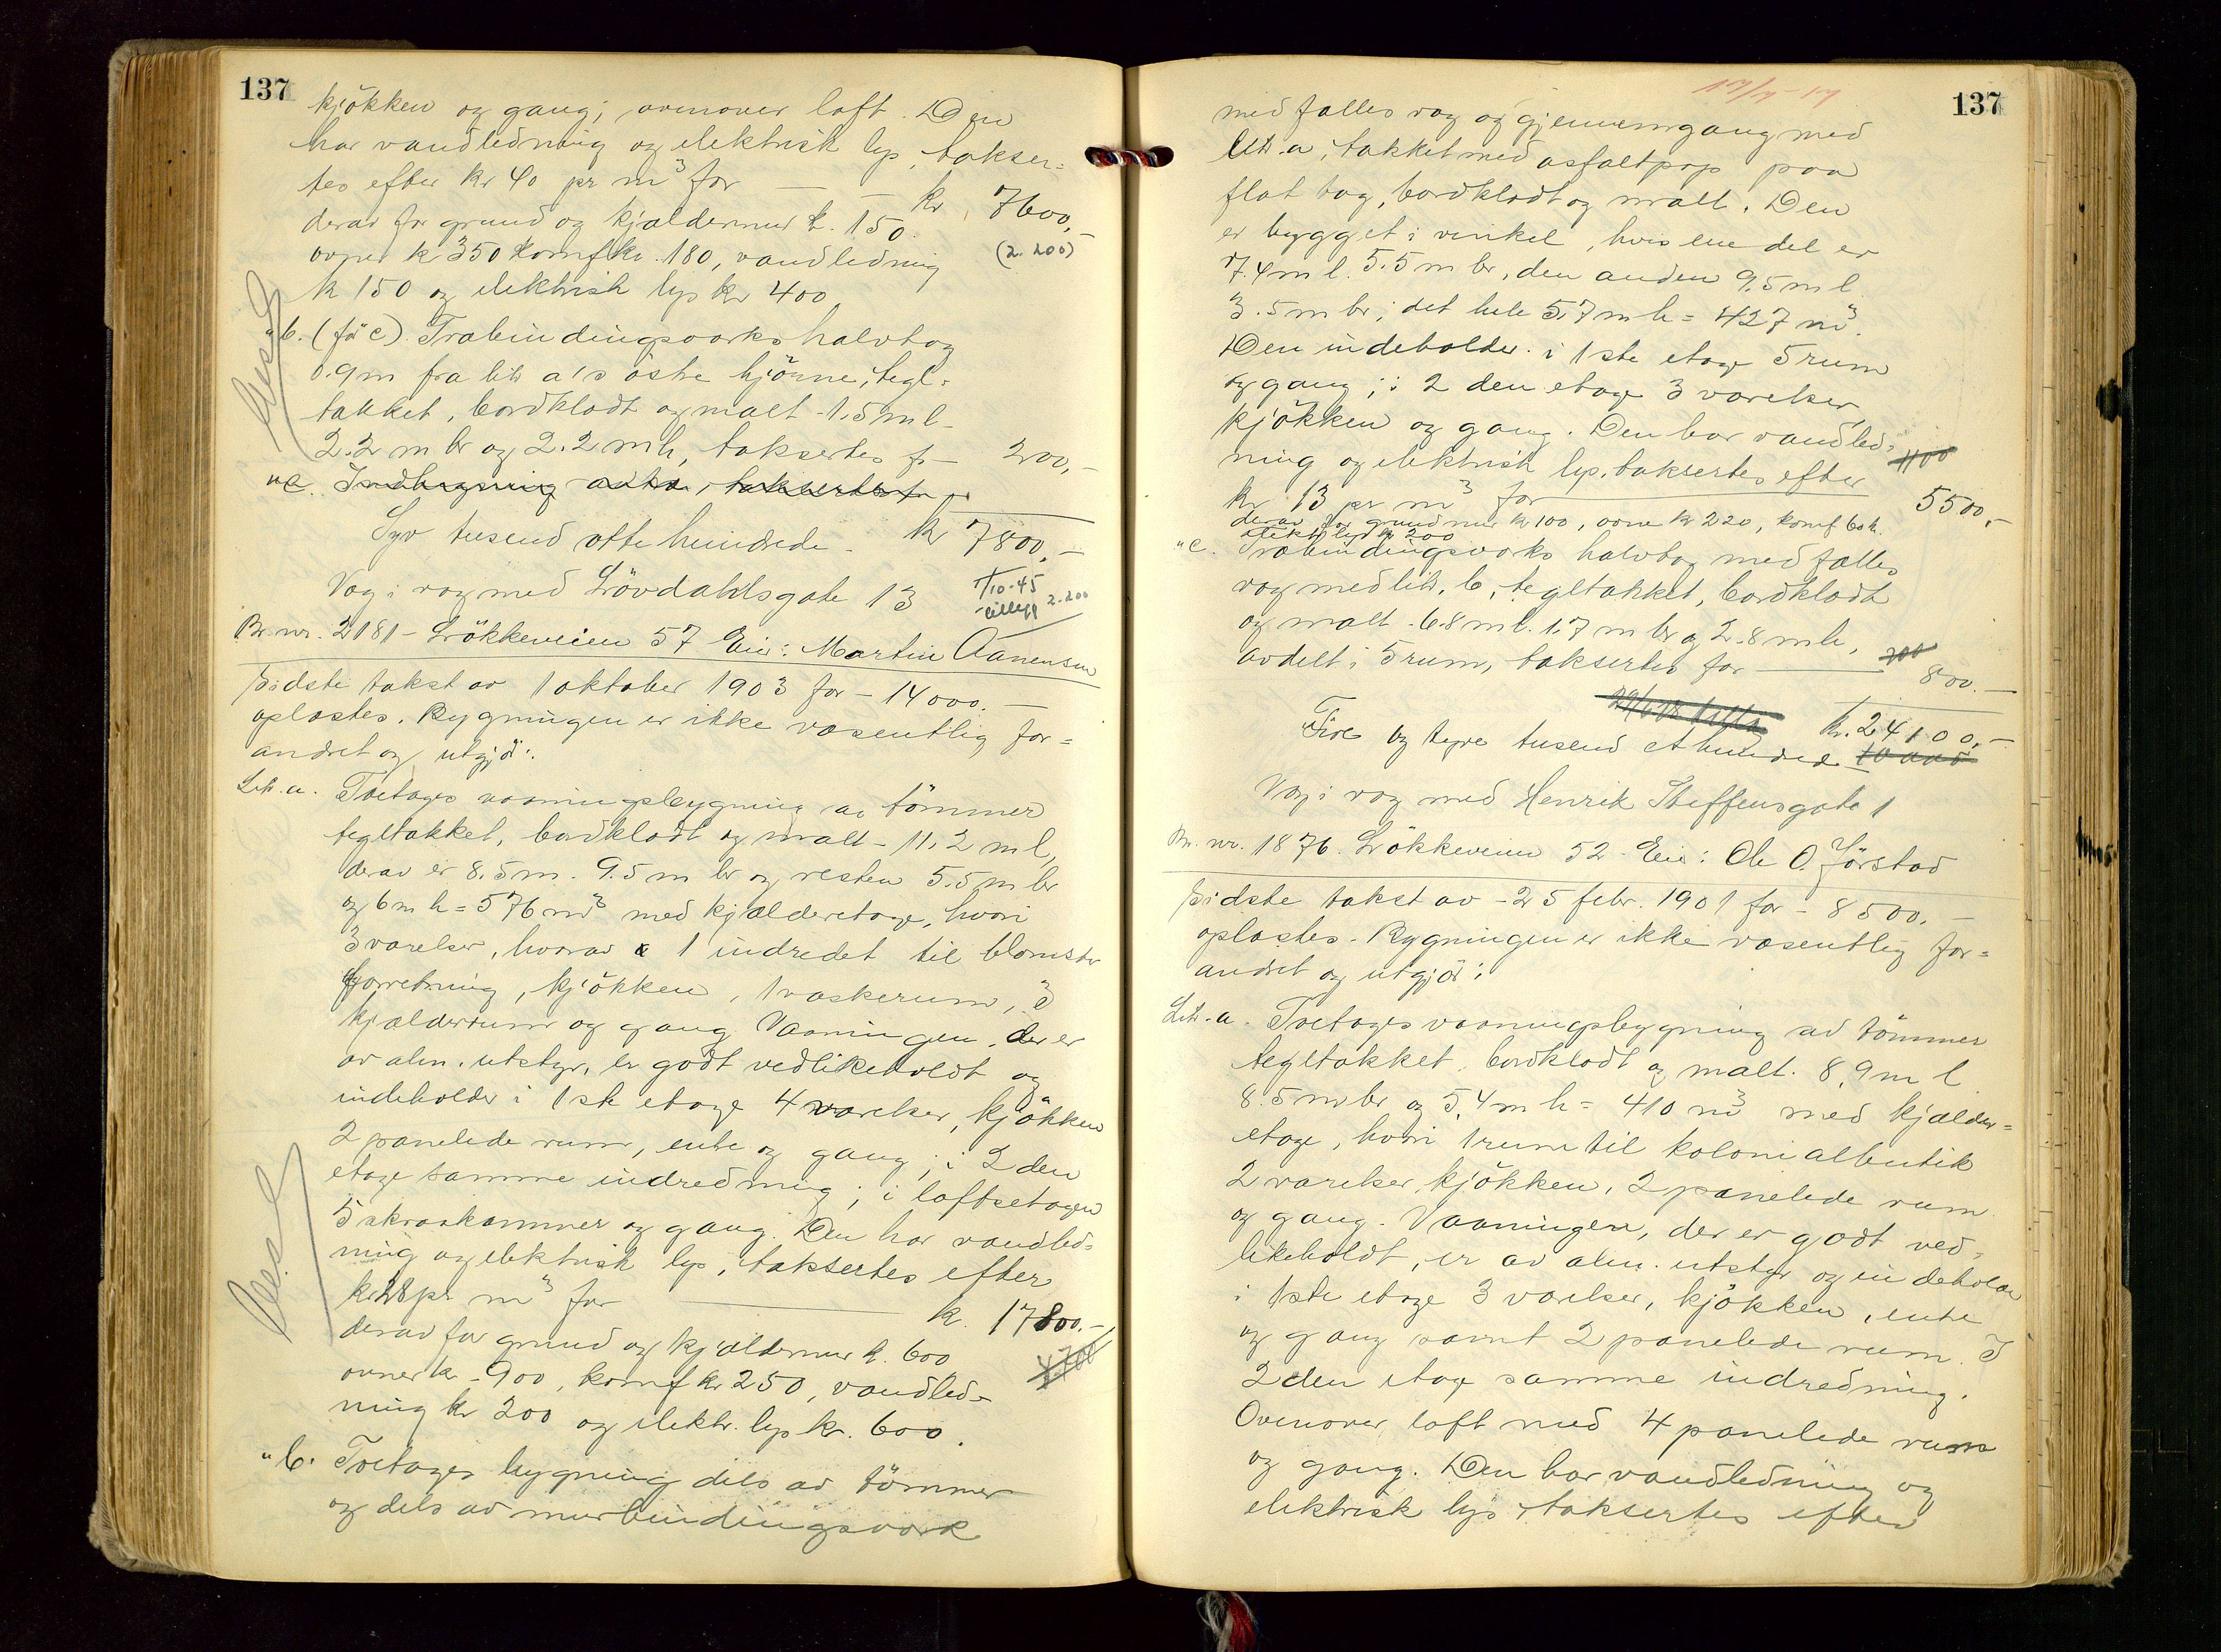 137
kjökken og gang; ovenover loft. Den
har vandledning og elektrisk lys, takser=
tes efter kr 40 pr m³ for — — kr. 7600,-
derav for grund og kjældermur k. 150.
(2.200)
ovner k 350 komf kr. 180, vandledning
k 150 og elektrisk lys kr 400
"b. (før c) Træbindingsverks halvtag
0.9m fra litr a's östre hjörne, tegl=
tækket, bordklædt og malt - 1,5 m l -
2.2 m br og 2.2 m h, taksertes for — 200,-
"c. Indhegning takseres for
Syv tusend otte hundrede - kr 7800,-
Væg i væg med Lövdahlsgate 13
1/10-45
tillegg 2.200
Br.nr. 2181 - Lökkeveien 57 Eier: Martin Aanensen
Sidste takst av 1 oktober 1903 for - 14000.-
oplæstes. Bygningen er ikke væsentlig for=
andret og utgjör:
Litr. a. Toetages vaaningsbygning av tömmer
tegltækket, bordklædt og malt - 11,2 m l,
derav er 8.5 m. 9.5 m br og resten 5.5 m br
og 6 m h = 576 m³ med kjælderetage, hvori
3 værelser, hvorav 1 indredet til blomster
forretning, kjökken, 1 vaskerum, 3
kjælderrum og gang. Vaaningen, der er
av alm. utstyr, er godt vedlikeholdt og
indeholder i 1ste etage 4 værelser, kjökken
2 panelede rum, entre og gang; i 2den
etage samme indredning; i loftsetagen
5 skraakammer og gang. Den har vandled=
ning og elektrisk lys, taksertes efter
kr 28 pr m³ for — k. 17800.-
derav for grund og kjældermur k. 600
4700
ovner kr. 900, komf kr 250, vandled=
ning kr 200 og elektr. lys kr. 600.
"b. Toetages bygning dels av tömmer
og dels av murbindingsverk
137
med fælles væg og gjennemgang med
litr. a, tækket med asfaltpap paa
flat tag, bordklædt og malt. Den
er bygget i vinkel, hvis ene del er
7.4 m l. 5.5 m br, den anden 9.5 m l
3.5 m br; det hele 5,7 m h = 427 m³.
Den indeholder i 1ste etage 5 rum
og gang; i 2den etage 3 værelser,
kjökken og gang. Den har vandled=
ning og elektrisk lys, taksertes efter 1100
kr 13 pr m³ for — 5500,-
derav for grundmur kr 100, ovne kr 220, komf 60 k.
elektr. lys kr 200
"c. Træbindingsverks halvtag med fælles
væg med litr. b, tegltækket, bordklædt
og malt - 6.8 m l. 1.7 m br og 2.8 m h,
avdelt i 5 rum, taksertes for — 200
800.-
kr. 24100,-
Fire og tyve tusend et hundrede 10000
Væg i væg med Henrik Steffensgate 1
Br. nr. 1876. Lökkeveien 52 - Eier: Ole O. Jörstad
Sidste takst av - 25 febr. 1901 for - 8500.-
oplæstes. Bygningen er ikke væsentlig for=
andret og utgjör:
Litr. a. Toetages vaaningsbygning av tömmer
tegltækket, bordklædt og malt. 8,9 m l
8.5 m br og 5.4 m h = 410 m³ med kjælder=
etage, hvori 1 rum til kolonialbutik
2 værelser, kjökken, 2 panelede rum
og gang. Vaaningen, der er godt ved=
likeholdt, er av alm. utstyr og indeholder
i 1ste etage 3 værelser, kjökken, entre
og gang samt 2 panelede rum. I
2den etage samme indredning.
Ovenover loft med 4 panelede rum
og gang. Den har vandledning og
elektrisk lys, taksertes efter